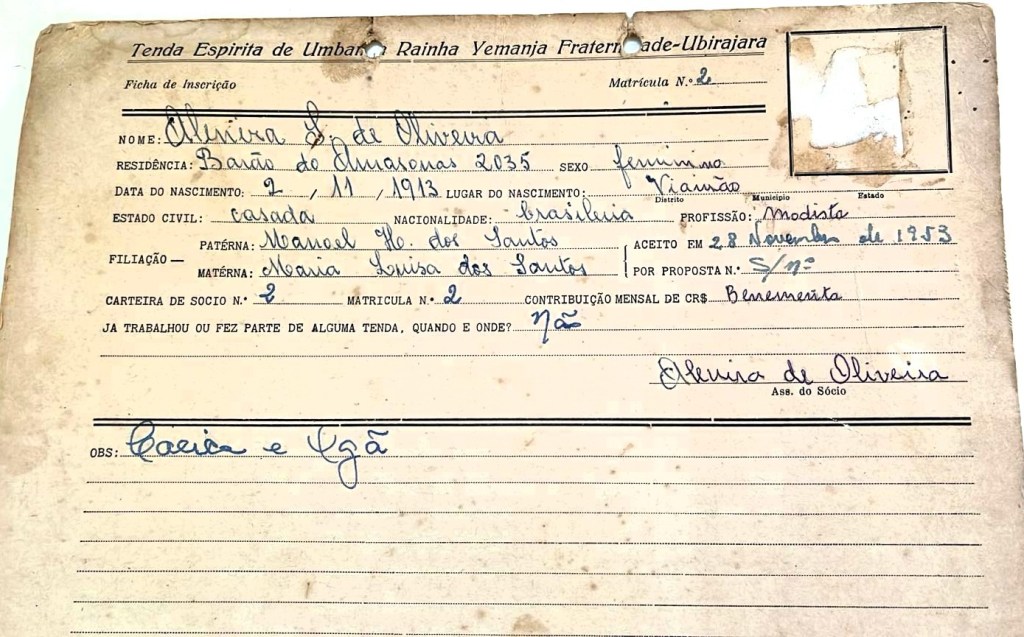 Tenda Espirita de Umbanda Rainha Yemanja Fraternidade-Ubirajara
Ficha de Inscrição Matrícula N.º 2
NOME: S. de Oliveira
RESIDÊNCIA: Barão do Amazonas 2035 SEXO feminino
DATA DO NASCIMENTO: 2 / 11 / 1913 LUGAR DO NASCIMENTO: Viamão
Distrito Município Estado
ESTADO CIVIL: casada NACIONALIDADE: brasileria PROFISSÃO: Modista
PATÉRNA: Manoel H. dos Santos ACEITO EM 28 Novembro de 1953
FILIAÇÃO —
MATÉRNA: Maria Luisa dos Santos POR PROPOSTA N.º S/nº
CARTEIRA DE SOCIO N.º 2 MATRICULA N.º 2 CONTRIBUIÇÃO MENSAL DE CR$ Benemerita
JA TRABALHOU OU FEZ PARTE DE ALGUMA TENDA, QUANDO E ONDE? Não
de Oliveira
Ass. do Sócio
OBS: e